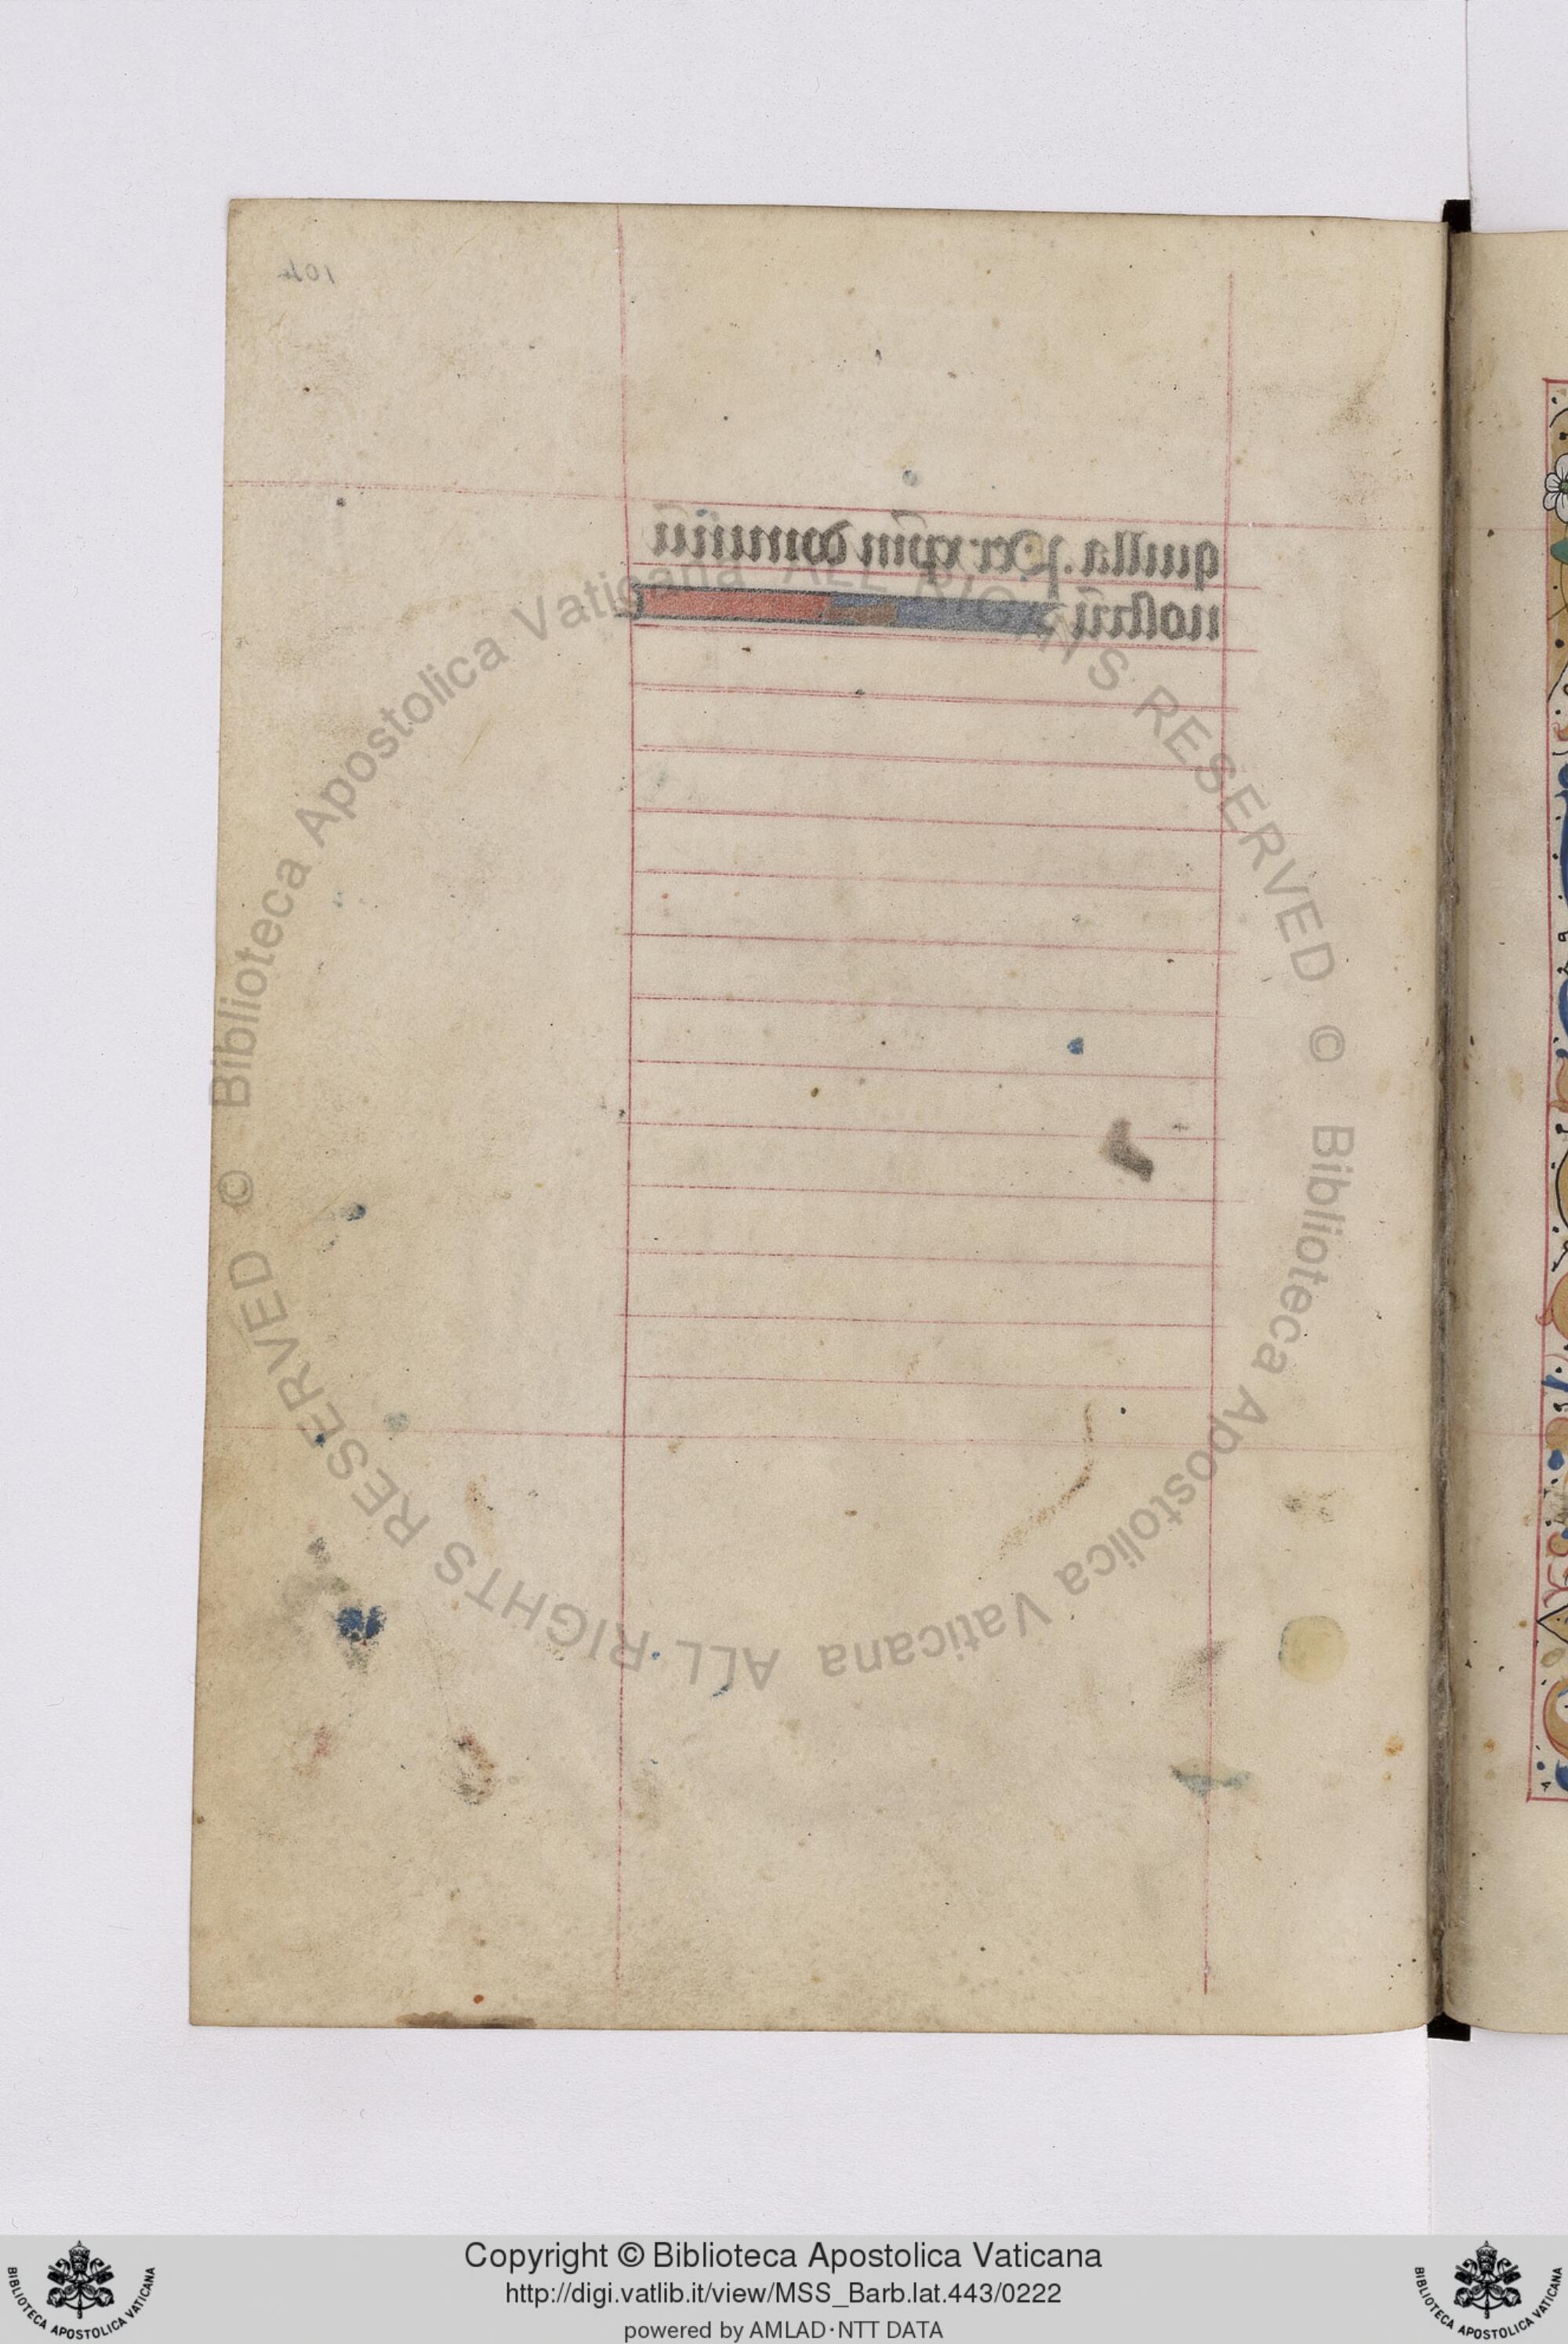 104
quilla. Per xp̄m dominū
nostrū
© Biblioteca Apostolica Vaticana ALL RIGHTS RESERVED © Biblioteca Apostolica Vaticana ALL RIGHTS RESERVED
Copyright © Biblioteca Apostolica Vaticana
http://digi.vatlib.it/view/MSS_Barb.lat.443/0222
powered by AMLAD·NTT DATA
BIBLIOTECA APOSTOLICA VATICANA
BIBLIOTECA APOSTOLICA VATICANA